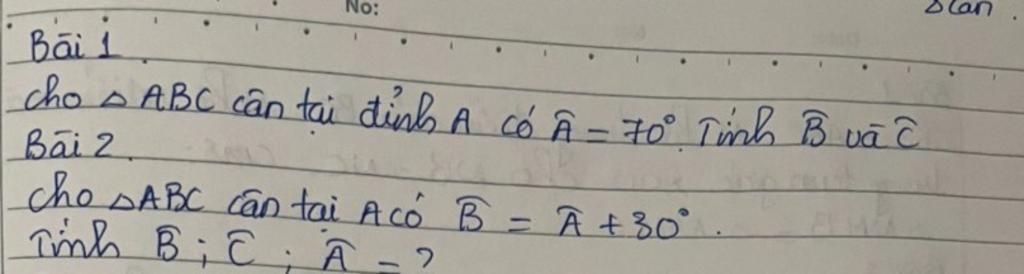 No:
Bāi 1
cho △ABC cān tại đỉnh A có Â = 70°. Tính B̂ và Ĉ
Bāi 2.
cho △ABC cān tại A có B̂ = Â + 30°.
Tính B̂ ; Ĉ ; Â = ?